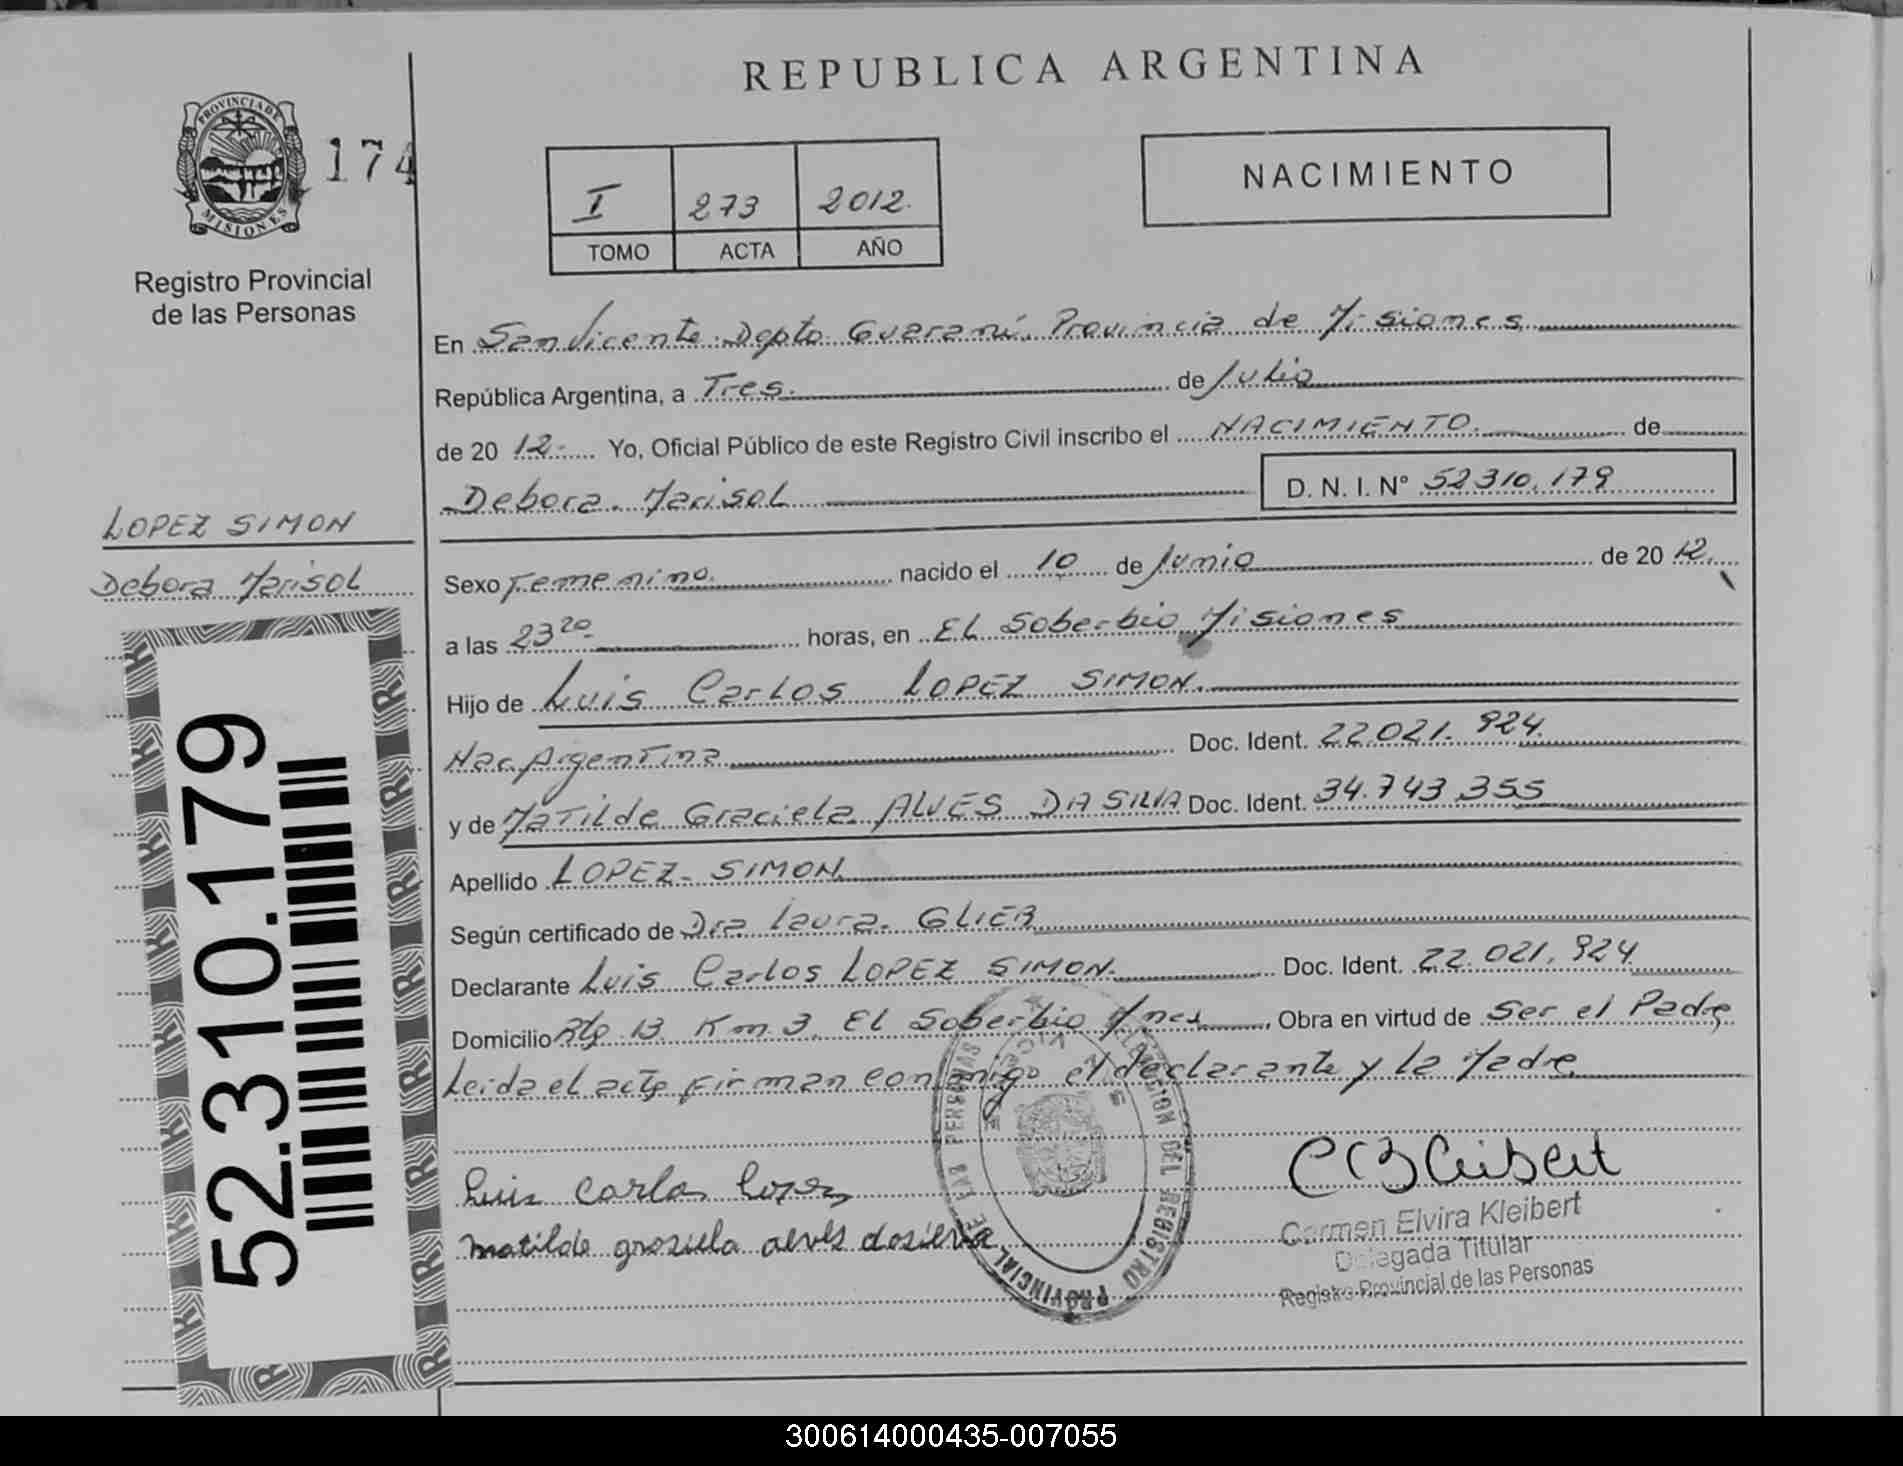 REPUBLICA ARGENTINA
PROVINCIA DE
MISIONES
174
Registro Provincial
de las Personas
I 273 2012.
TOMO ACTA AÑO
NACIMIENTO
En San Vicente Depto Guaraní. Provincia de Misiones
República Argentina, a Tres. de Julio
de 20 12- Yo, Oficial Público de este Registro Civil inscribo el NACIMIENTO. de
Debora Marisol D. N. I. N° 52310.179
LOPEZ SIMON
Debora Marisol
52.310.179
Sexo Femenino. nacido el 10 de Junio de 20 12.
a las 23 20- horas, en EL Soberbio Misiones
Hijo de Luis Carlos LOPEZ SIMON.
Nac. Argentina Doc. Ident. 22.021.924
y de Matilde Graciela ALVES DA SILVA Doc. Ident. 34.743.355
Apellido LOPEZ SIMON
Según certificado de Dra Laura GLIER
Declarante Luis Carlos LOPEZ SIMON. Doc. Ident. 22.021.924
Domicilio Km 3. EL Soberbio Mnes Obra en virtud de Ser el Padre
Leida el acta firman conmigo el declarante y la Madre
Luis Carlos Lopez
matilde grasiela alves dasilva
PROVINCIAL DE LAS PERSONAS
DELEGACION DEL REGISTRO
Carmen Elvira Kleibert
Delegada Titular
Registro Provincial de las Personas
300614000435-007055